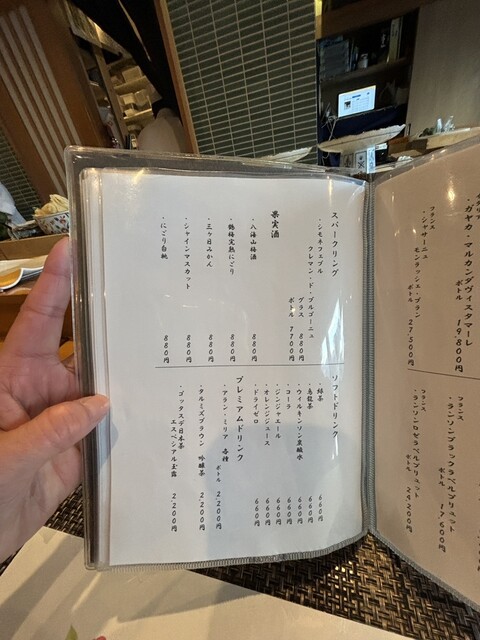 ガヤカ・マルカンダヴィスタマーレ
ボトル 19,800円
フランス
・シャサーニュ
モンラッシェ・ブラン
ボトル 27,500円
フランス
・ランソンブラックラベルブリュット
ボトル 17,600円
フランス
・ランソンロゼラベルブリュット
ボトル 24,200円
スパークリング
・シモネフェブル
クレマン・ド・ブルゴーニュ
グラス 880円
ボトル 7700円
果実酒
・八海山梅酒 880円
・鶴梅完熟にごり 880円
・三ヶ日みかん 880円
・シャインマスカット 880円
・にごり白桃 880円
ソフトドリンク
・緑茶 660円
・烏龍茶 660円
・ウィルキンソン炭酸水 660円
・コーラ 660円
・ジンジャエール 660円
・オレンジジュース 660円
・ドライゼロ 660円
プレミアムドリンク
・アラン・ミリア 各種
ボトル 2,200円
・タルミズブラウン 吟醸茶 2,200円
・ゴッタスデ日本茶
エスペシアル玉露 2,200円